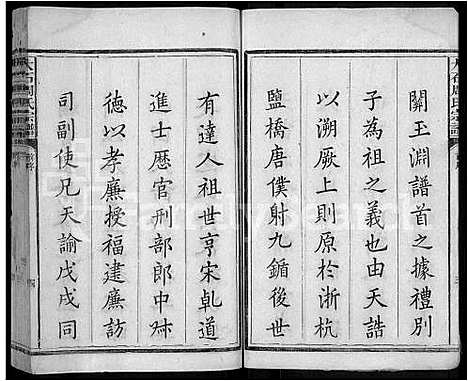 大石周氏宗譜
關玉淵譜首之據禮別
子為祖之義也由天誥
以溯厥上則原於浙杭
鹽橋唐僕射九錨後世
有達人祖世亨宋乹道
進士歷官刑部郎中㱑
德以孝廉授福建廉訪
司副使兄天諭戊戌同
大石周氏宗譜